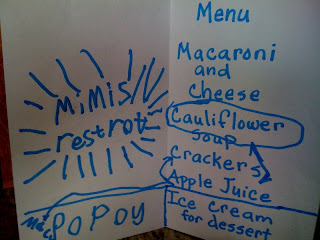 Mimis
restrot
POPOY
Menu
Macaroni
and
Cheese
Cauliflower
soup
Crackers
Apple Juice
Ice cream
for dessert